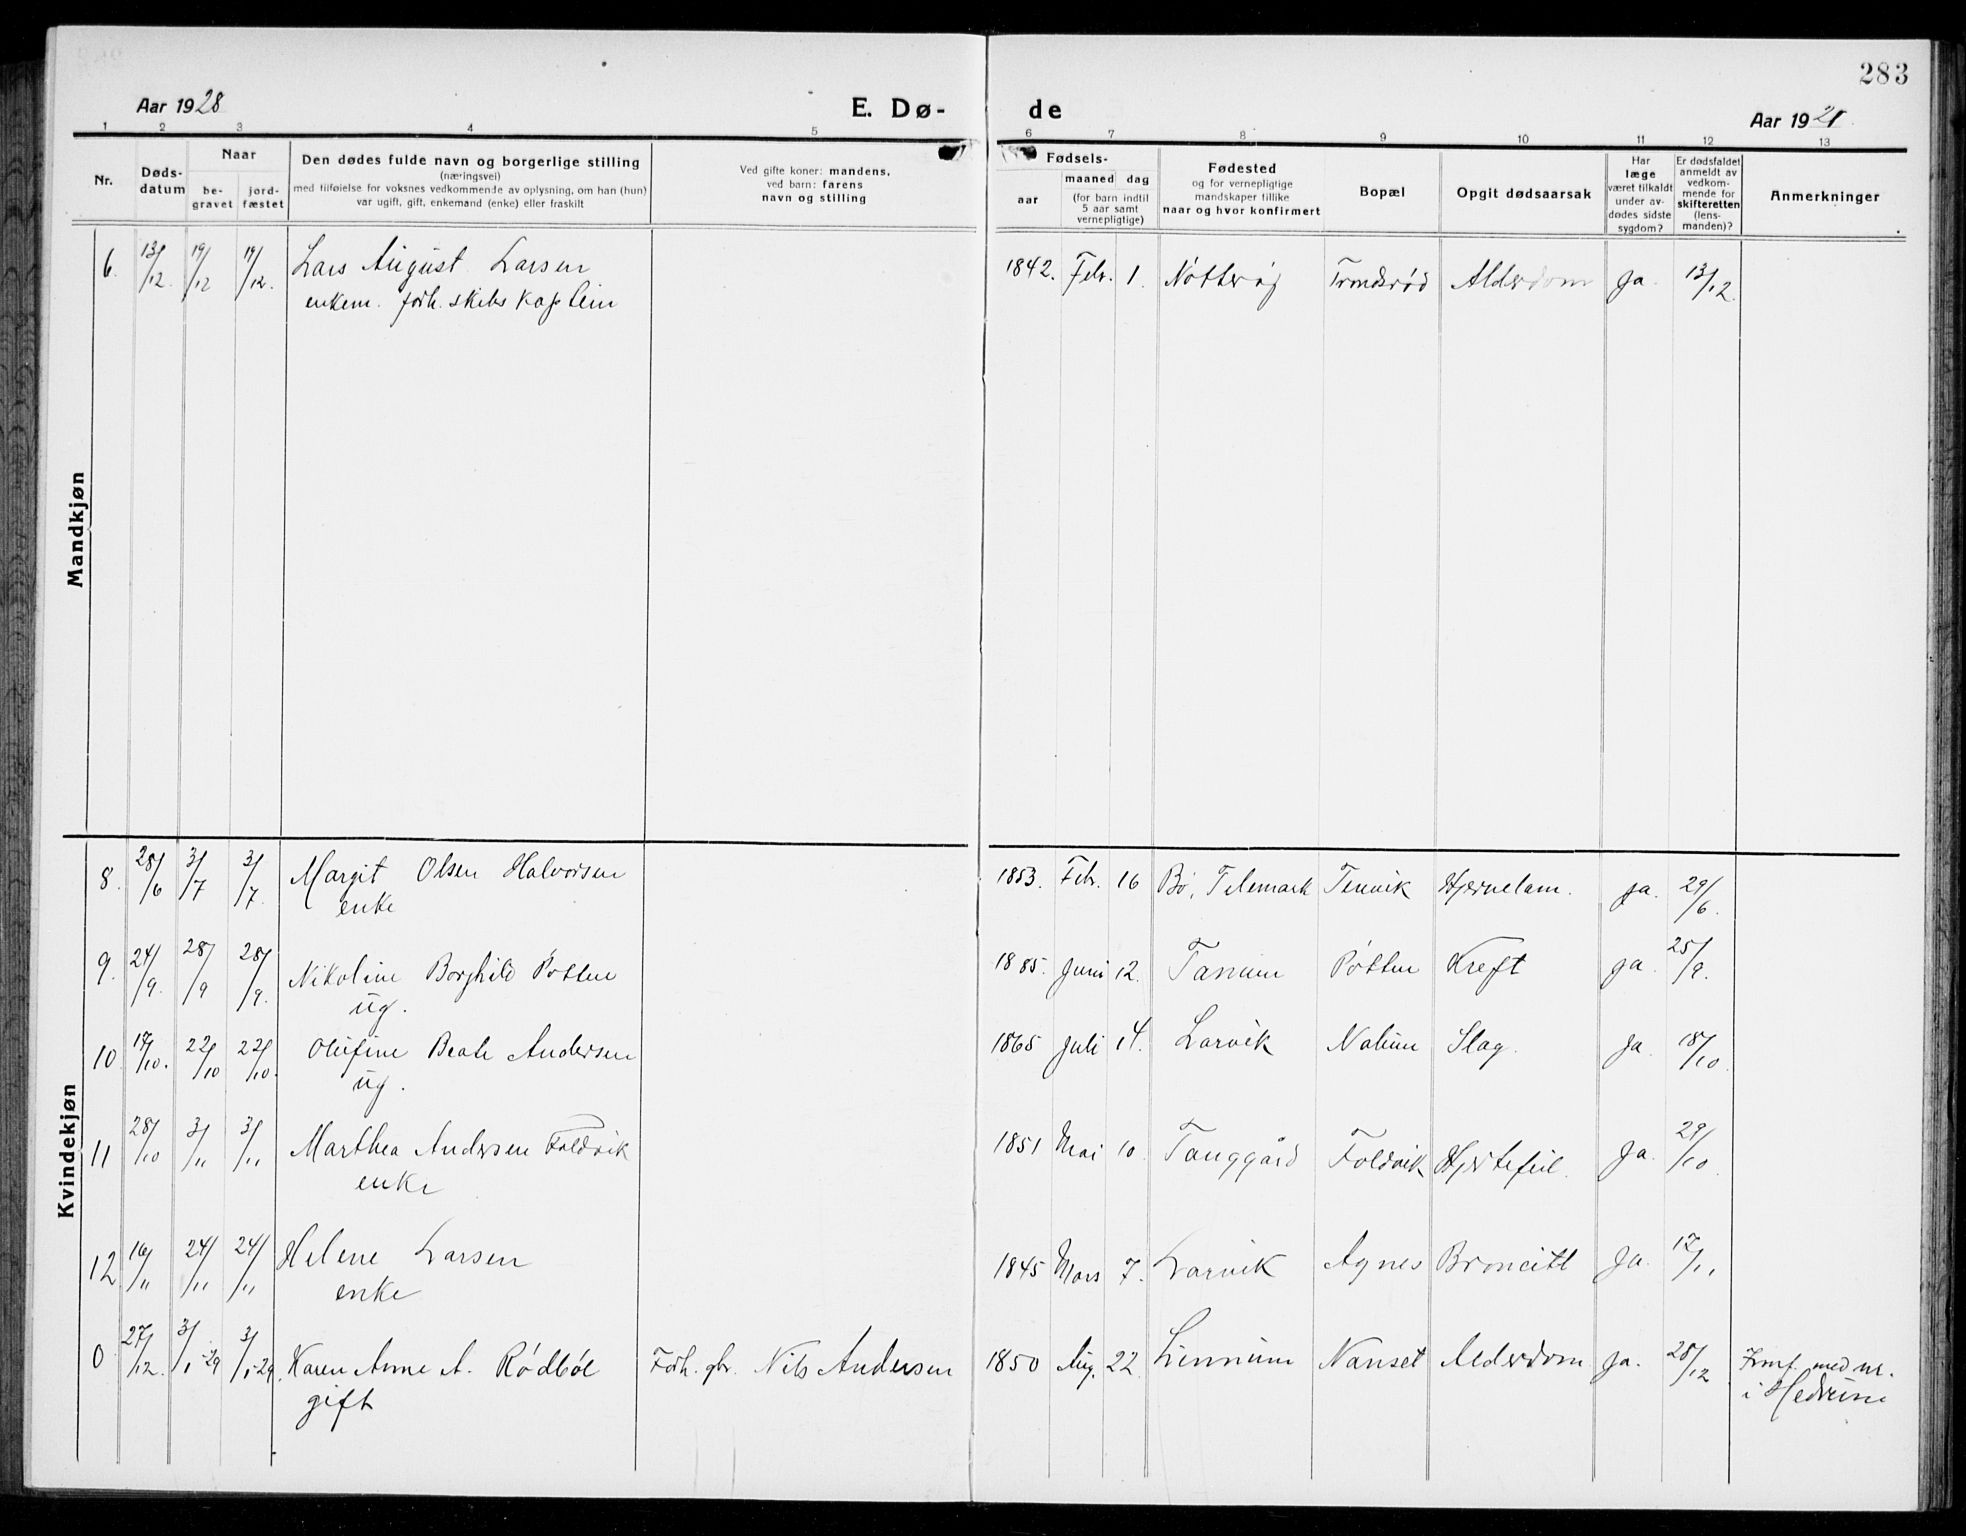 283
Aar 1928
E. Dø-
de
Aar 192
1 2 3 4 5 6 7 8 9 10 11 12 13
Nr.
Døds-
datum
Naar
be-
gravet
jord-
fæstet
Den dødes fulde navn og borgerlige stilling
(næringsvei)
med tilføielse for voksnes vedkommende av oplysning, om han (hun)
var ugift, gift, enkemand (enke) eller fraskilt
Ved gifte koner: mandens,
ved barn: farens
navn og stilling
Fødsels-
aar
maaned dag
(for barn indtil
5 aar samt
vernepligtige)
Fødested
og for vernepligtige
mandskaper tillike
naar og hvor konfirmert
Bopæl
Opgit dødsaarsak
Har
læge
været tilkaldt
under av-
dødes sidste
sygdom?
Er dødsfaldet
anmeldt av
vedkom-
mende for
skifteretten
(lens-
manden)?
Anmerkninger
Mandkjøn
6. 13/12. 19/12 19/12. Lars August Larsen 1842. Febr. 1. Nøtterøy Trondsrød Alderdom Ja. 13/12.
enkem. forh. skibskaptein
Kvindekjøn
8. 28/6 3/7 3/7. Margit Olsen Halvorsen 1853. Febr. 16 Bø, Telemark Tenvik Hjernelam. ja. 29/6.
enke
9. 24/9. 28/9 28/9. Nikoline Borghild Pøtten 1885. Juni 12. Tanum Pøtten Kreft ja. 25/9.
ug.
10 17/10. 22/10 22/10. Olufine Beate Andersen 1865 Juli 14. Larvik Nalum Slag. Ja. 18/10.
ug.
11 28/10 3/11 3/11 Marthea Andersen Foldvik 1851 Mai 10. Tanggård Foldvik Hjertefeil. Ja. 29/10.
enke
12 16/11 24/11 24/11 Helene Larsen 1845 Mars 7. Larvik Agnes Broncitt Ja. 17/11
enke
0 27/12. 3/1-29 3/1-29 Karen Anne A. Rødbøl Forh. gbr. Nils Andersen 1850 Aug. 22. Liennum Nanset Alderdom Ja. 28/12 med nr.
gift i Hedrum